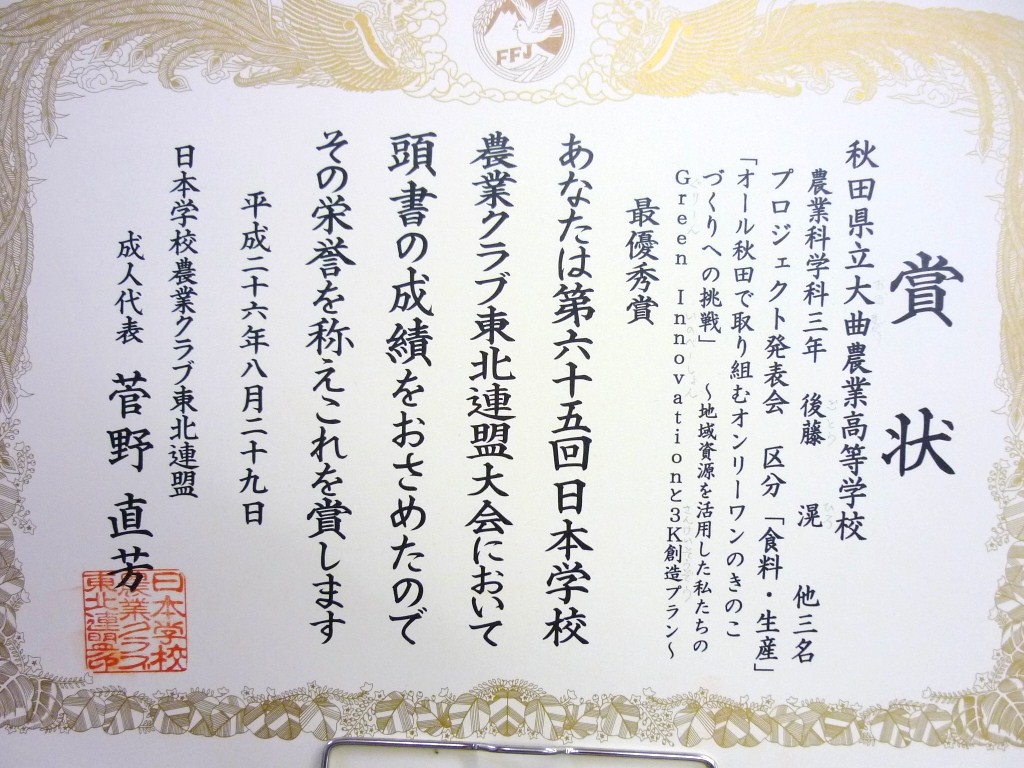 FFJ
賞状
秋田県立大曲農業高等学校
農業科学科三年 後藤 滉 他三名
プロジェクト発表会 区分「食料・生産」
「オール秋田で取り組むオンリーワンのきのこ
づくりへの挑戦」 ～地域資源を活用した私たちの
Green Innovationと3K創造プラン～
最優秀賞
あなたは第六十五回日本学校
農業クラブ東北連盟大会において
頭書の成績をおさめたので
その栄誉を称えこれを賞します
平成二十六年八月二十九日
日本学校農業クラブ東北連盟
成人代表 菅野直芳
日本学校
農業クラブ
東北連盟印